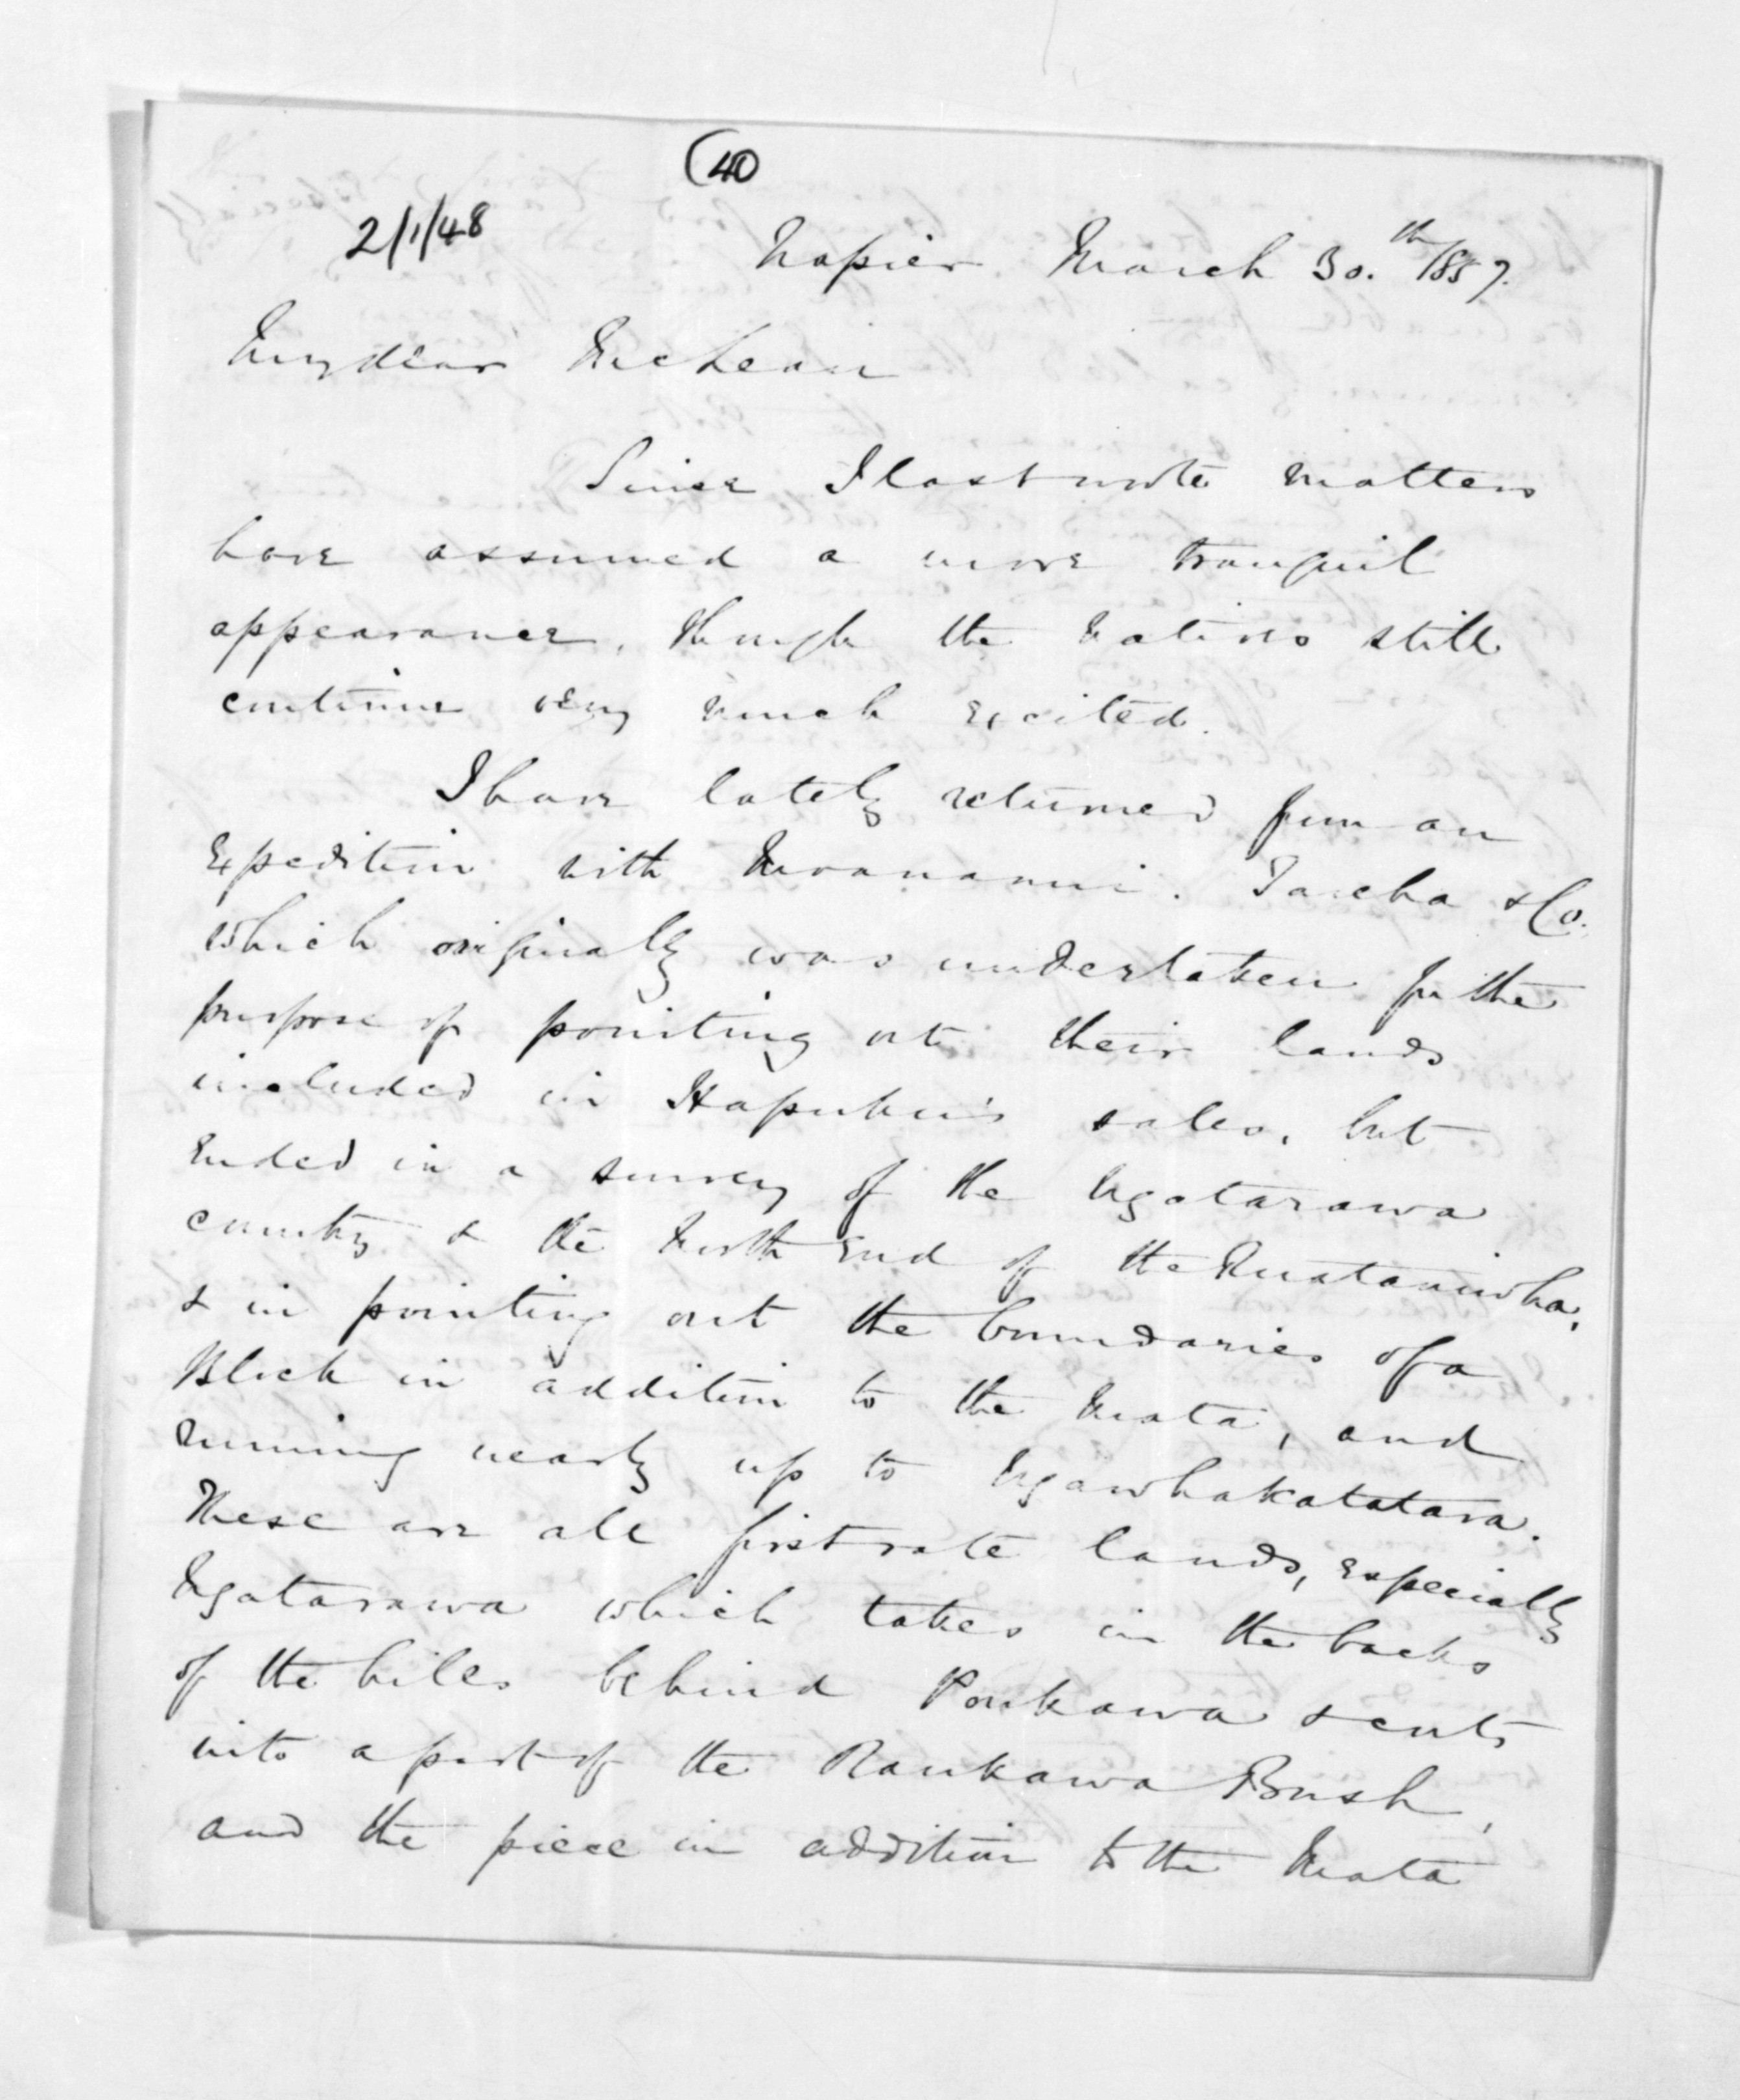 (40
2/1/48
Napier March 30.th 1857.
My dear McLean
Since I last wrote matters
have assumed a more tranquil
appearance, though the Natives still
continue very much excited.
I have lately returned from an
Expedition with Moananui. Tareha & Co.
which originally was undertaken for the
purpose of pointing out their lands
included in Hapuku's sales, but
Ended in a survey of the Ngatarawa
country & the North End of the Ruataniwha,
& in pointing out the boundaries of a
Block in addition to the Mata, and
running nearly up to Ngawhakatatara.
These are all first rate lands, especially
Ngatarawa which takes in the backs
of the hills behind Poukawa & cuts
into a part of the Raukawa Bush,
and the piece in addition to the Mata